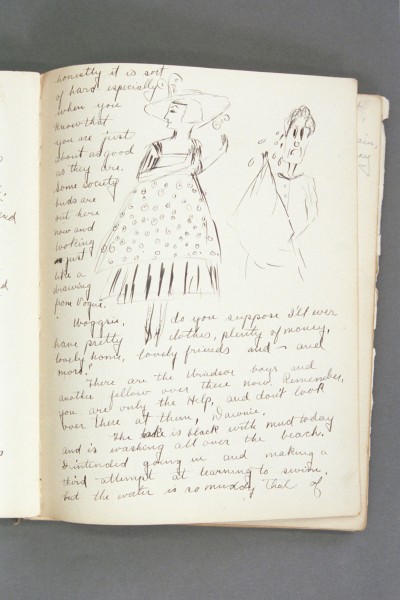 honestly it is sort
of hard especially
when you
know that
you are just
about as good
as they are.
Some society
buds are
out here
now and
looking
just
like a
drawing
from Vogue.
Woggsie, do you suppose I'll ever
have pretty clothes, plenty of money,
lovely home, lovely friends and - and
more?
There are the Windsor boys and
another fellow over there now. Remember,
you are only the Help, and don't look
over there at them, Dawnie.
The lake is black with mud today
and is washing all over the beach.
I intended going in and making a
third attempt at learning to swim,
but the water is so muddy that of